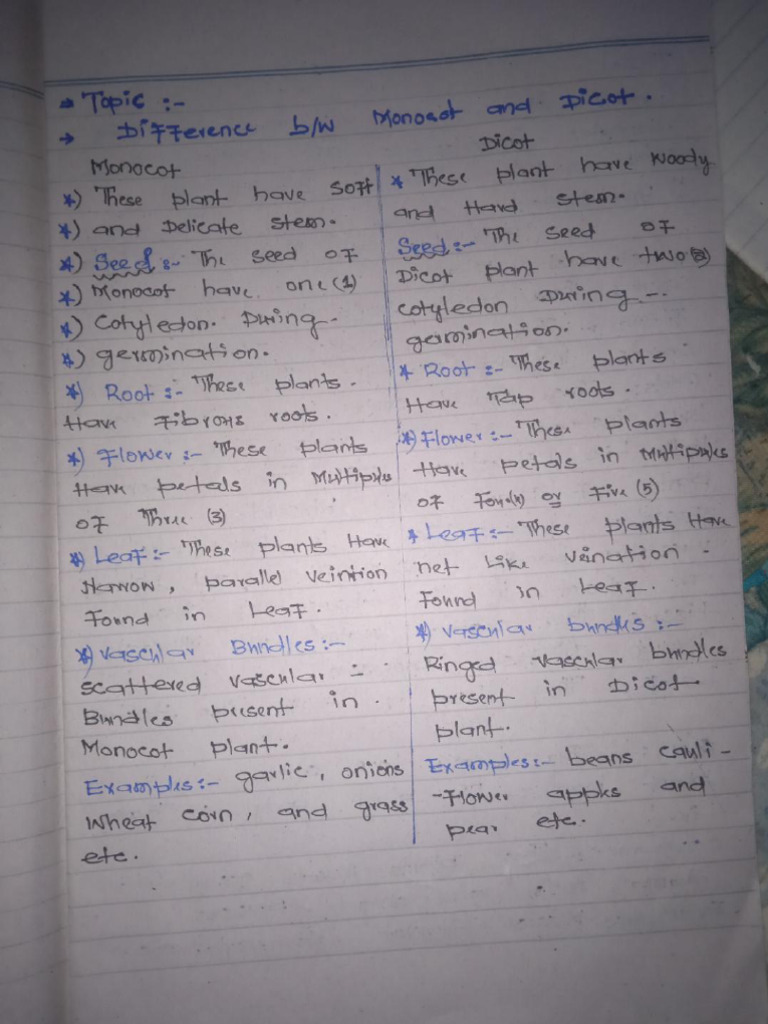 → Topic :-
→ Difference b/w Monocot and Dicot.
Monocot
*) These plant have soft
*) and Delicate stem.
*) Seed :- The seed of
*) Monocot have one (1)
*) Cotyledon. During -
*) germination.
*) Root :- These plants.
Have Fibrous roots.
*) Flower :- These plants
Have petals in Multiples
of Three (3)
*) Leaf :- These plants Have
Narrow, parallel veintion
Found in Leaf.
*) Vascular Bundles :-
scattered vascular -
Bundles present in.
Monocot plant.
Examples :- garlic, onions
wheat corn, and grass
etc.
Dicot
* These plant have woody
and Hard stem.
Seed :- The seed of
Dicot plant have two (2)
cotyledon During -.
germination.
* Root :- These plants
Have Tap roots.
*) Flower :- These plants
Have petals in Multiples
of Four(4) or Five (5)
* Leaf :- These plants Have
net Like veination -
Found in Leaf.
*) Vascular bundles :-
Ringed vascular bundles
present in Dicot
plant.
Examples :- beans cauli-
-Flower apples and
pear etc.